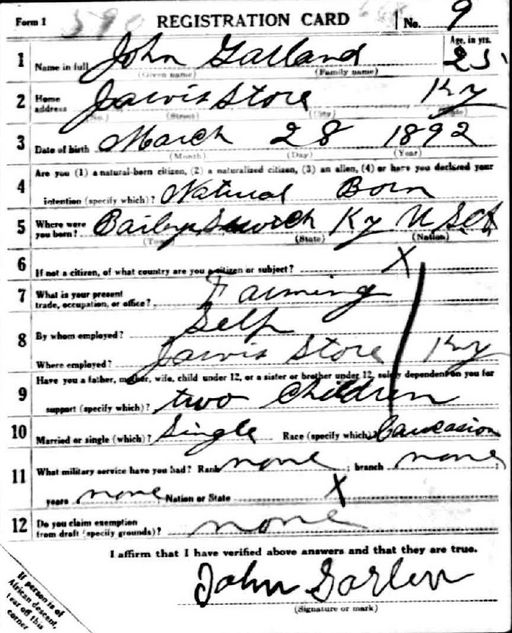 Form 1 REGISTRATION CARD No. 9
Age, in yrs.
1 Name in full John Garland 25
(Given name) (Family name)
2 Home address Jarvis Store Ky
(No.) (Street) (City) (State)
3 Date of birth March 28 1892
(Month) (Day) (Year)
Are you (1) a natural-born citizen, (2) a naturalized citizen, (3) an alien, (4) or have you declared your
4 intention (specify which)? Natural Born
5 Where were you born? Ky
(Town) (State) (Nation)
6 If not a citizen, of what country are you a citizen or subject? X
7 What is your present trade, occupation, or office? Farming
8 By whom employed? Self
Where employed? Jarvis Store Ky
9 Have you a father, mother, wife, child under 12, or a sister or brother under 12, solely dependent on you for
support (specify which)? two Children
10 Married or single (which)? Single Race (specify which)? Caucasion
11 What military service have you had? Rank none ; branch none ;
years none Nation or State X
12 Do you claim exemption from draft (specify grounds)? none
I affirm that I have verified above answers and that they are true.
John Garlen
(Signature or mark)
If person is of
African descent,
tear off this
corner